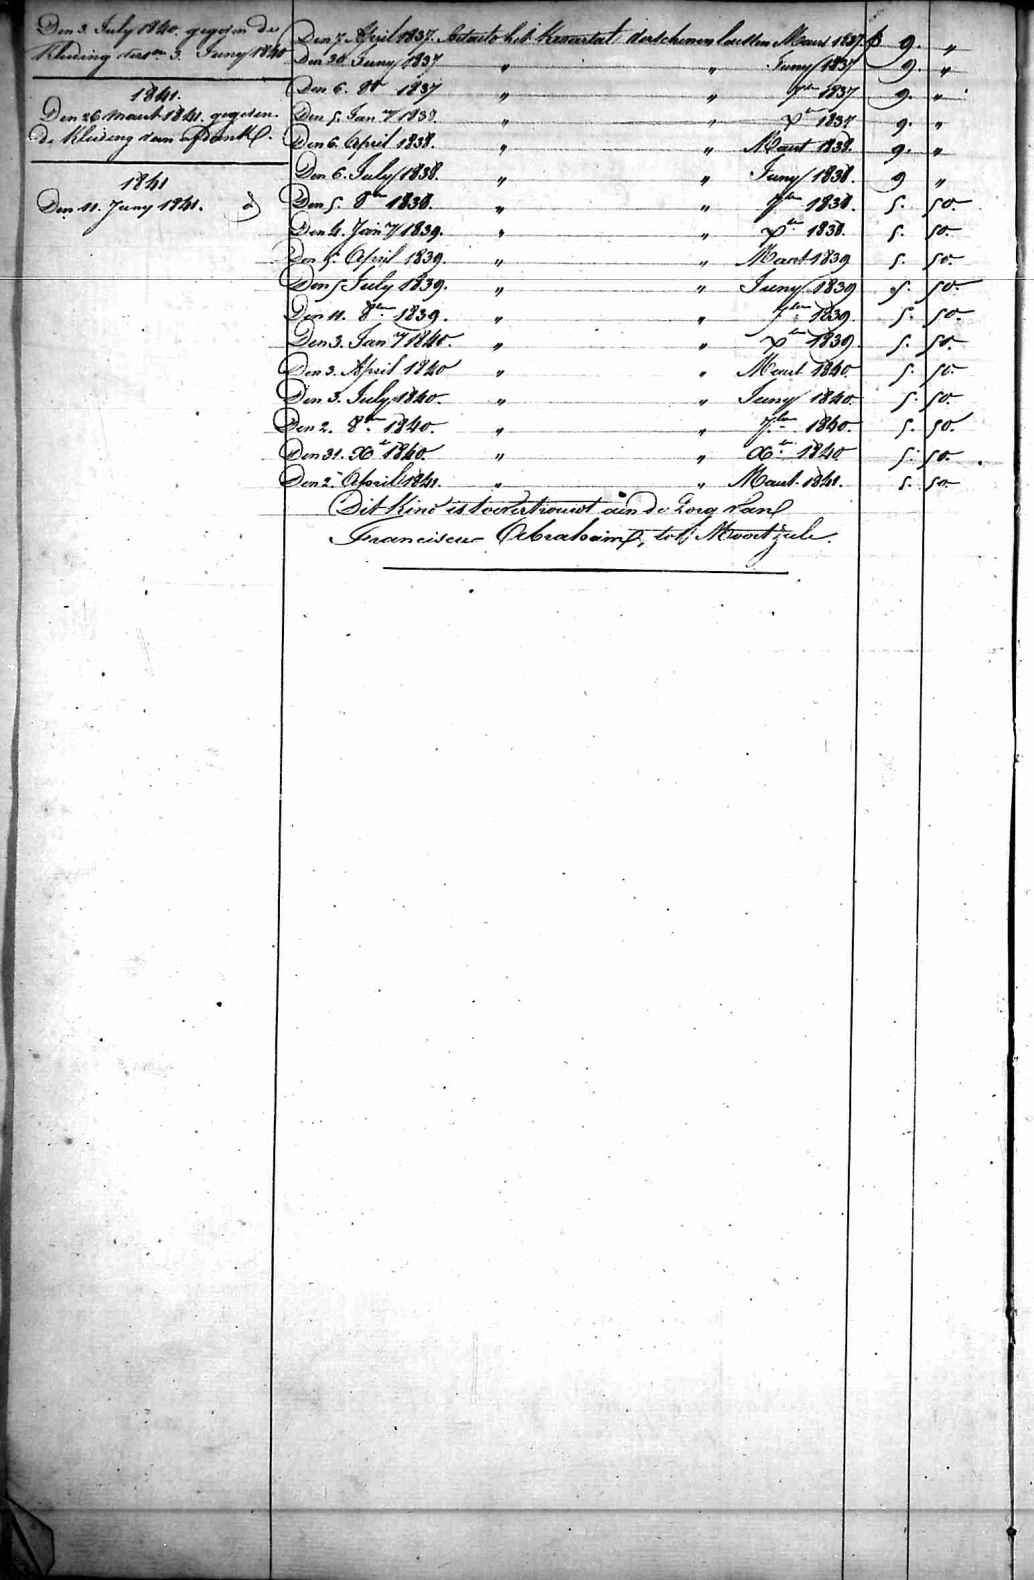 Den 3. July 1840. gegeven de
Kleeding der 3. Juny 1840
1841.
Den 26 maart 1841. gegeven
de Kleeding van
1841
Den 11. Juny 1841.
Den 7. April 1837. betaelt het kwartael verschenen laetsten Maart 1837. 9. "
Den 30 Juny 1837 " " Juny 1837 9. "
Den 6. 8bre 1837 " " 7bre 1837 9. "
Den 5. Jany 1838. " " Xbre 1837 9. "
Den 6. April 1838. " " Maart 1838. 9. "
Den 6. July 1838. " " Juny 1838. 9 "
Den 5. 8bre 1838. " " 7bre 1838. 5. 50.
Den 4. Jany 1839. " " Xbre 1838. 5. 50.
Den 5. April 1839. " " Maart 1839 5. 50.
Den 5 July 1839. " " Juny 1839 5. 50.
Den 11. 8bre 1839. " " 7bre 1839. 5. 50.
Den 3. Jany 1840. " " Xbre 1839. 5. 50.
Den 3. April 1840 " " Maart 1840. 5. 50.
Den 3. July 1840. " " Juny 1840. 5. 50.
Den 2. 8bre 1840. " " 7bre 1840. 5. 50.
Den 31. Xbre 1840. " " Xbre 1840 5. 50.
Den 2. April 1841. " " Maart 1841. 5. 50.
Dit Kind is toevertrouwt aen de Zorg van
Franciscus Abrahams, tot Moortzele.